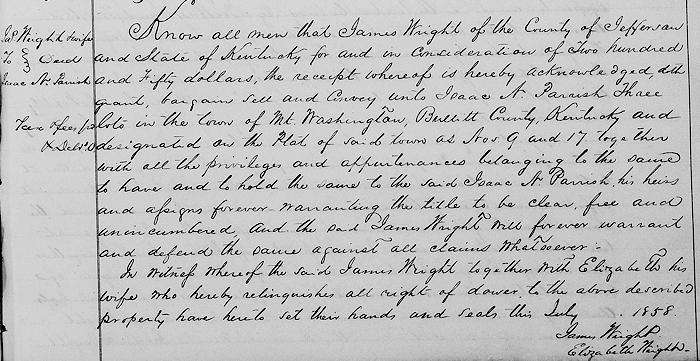 Jas. Wright & wife
To } Deed
Isaac N. Parrish
Tax & fees pd
& Deld
Know all men that James Wright of the County of Jefferson
and State of Kentucky for and in consideration of Two hundred
and Fifty dollars, the receipt whereof is hereby acknowledged, doth
grant, bargain sell and Convey unto Isaac N. Parrish Three
lots in the town of Mt. Washington, Bullitt County, Kentucky and
designated on the Plat of said town as Nos 9 and 17 together
with all the privileges and appurtenances belonging to the same
to have and to hold the same to the said Isaac N. Parrish, his heirs
and assigns forever warranting the title to be clear, free and
unincumbered, and the said James Wright will forever warrant
and defend the same against all claims whatsoever.
In witness whereof the said James Wright together with Elizabeth his
wife who hereby relinquishes all right of dower to the above described
property have hereto set their hands and seals this July . 1858.
James Wright
Elizabeth Wright